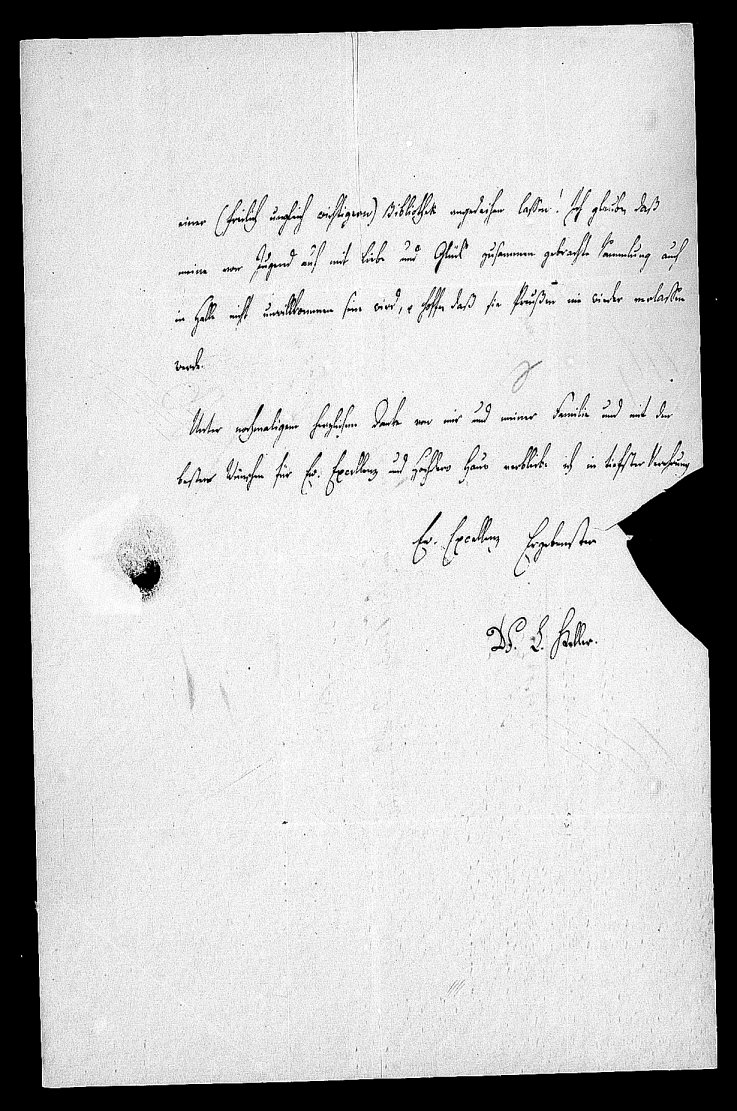 einer (freilich ungleich wichtigeren) Bibliothek angedeihen lassen! Ich glaube, daß
meine von Jugend auf mit Liebe und Glück zusammen gebrachte Sammlung auch
in Halle nicht unwillkommen sein wird, u hoffe daß sie Preußen nie wieder verlassen
werde.
Unter nochmaligem herzlichem Danke von mir und meiner Familie und mit den
besten Wünschen für Ew. Excellenz und Hochdero Haus verbleibe ich in tiefster Verehrung
Ew. Excellenz Ergebenster
Dr. Keller.